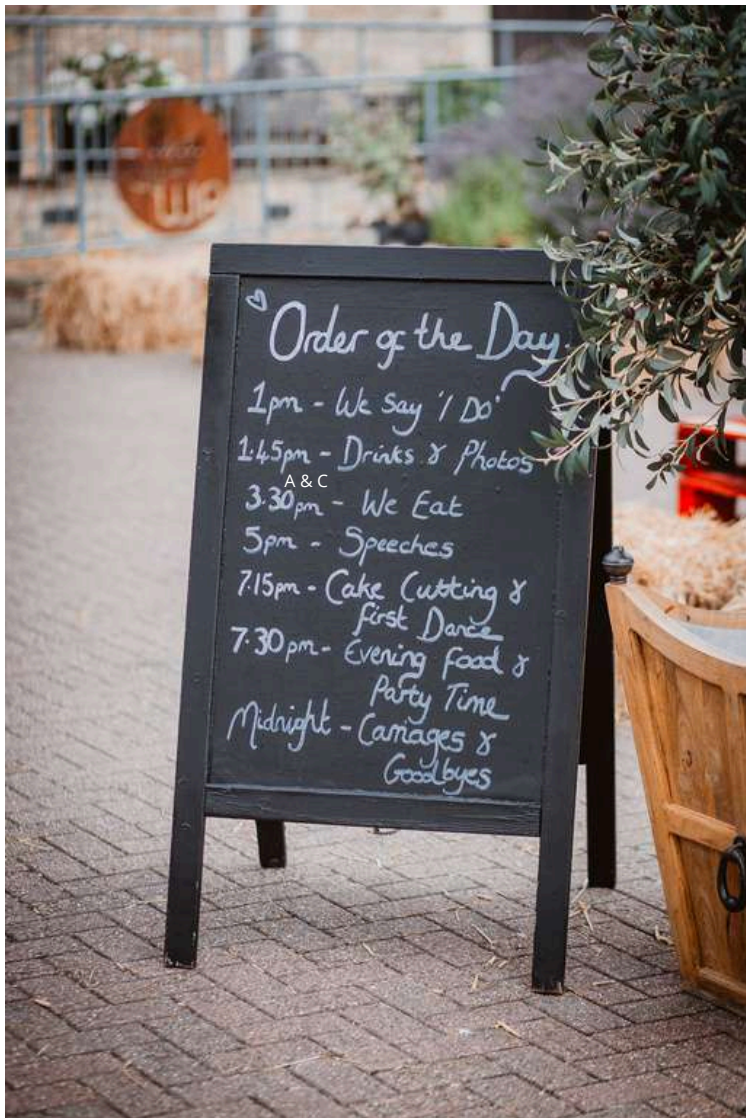 Order of the Day
1pm - We Say 'I Do'
1.45pm - Drinks & Photos
A & C
3.30pm - We Eat
5pm - Speeches
7.15pm - Cake Cutting &
First Dance
7.30pm - Evening food &
Party Time
Midnight - Carriages &
Goodbyes